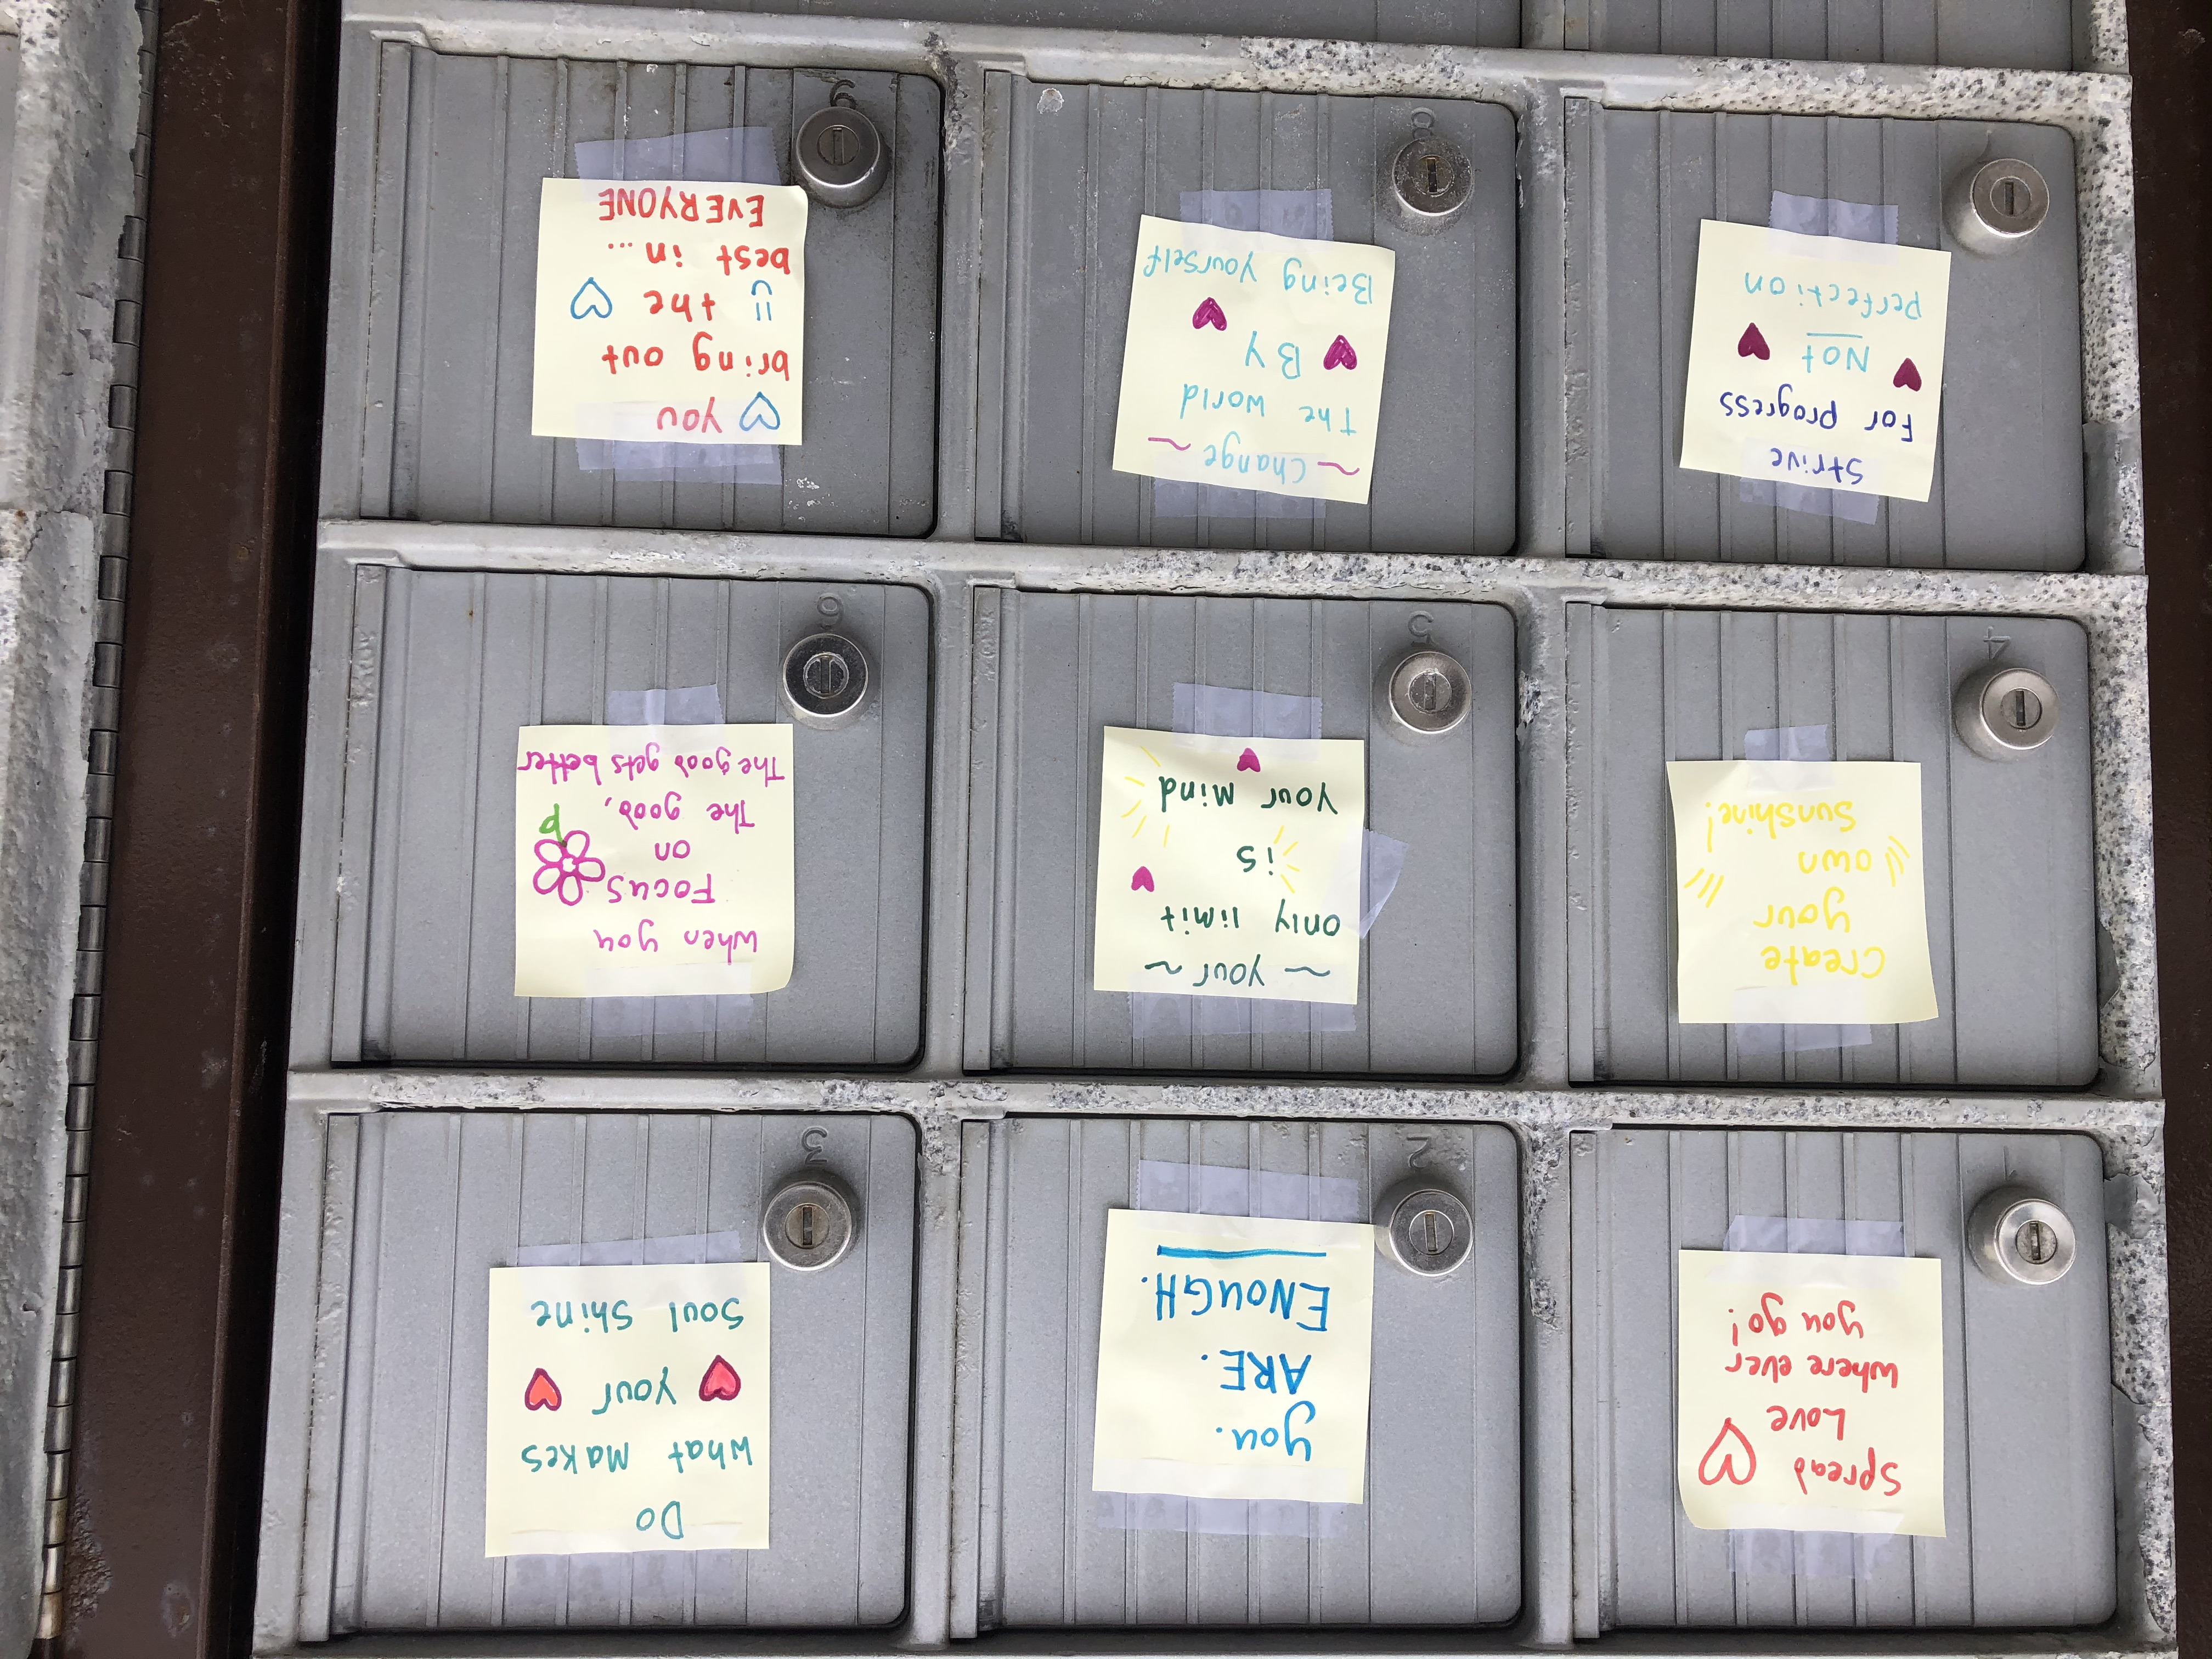 Spread
Love
where ever
you go!
you.
ARE.
ENOUGH.
2
Do
what Makes
your
Soul Shine
3
Create
your
own
Sunshine!
4
~ your ~
only limit
is
your mind
5
when you
Focus
on
The good,
The good gets better
6
Strive
For progress
Not
perfection
~ Change ~
The world
By
Being yourself
8
you
bring out
the
best in...
EVERYONE
9